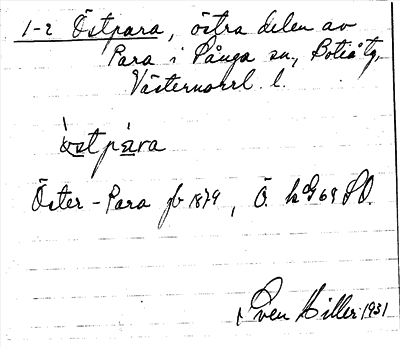 1-2 Östpara, östra delen av
Para i Sånga sn, Boteå tg,
Västernorrl. l.
östpàra
Öster-Para jb 1879, Ö.
Sven Hiller 1931